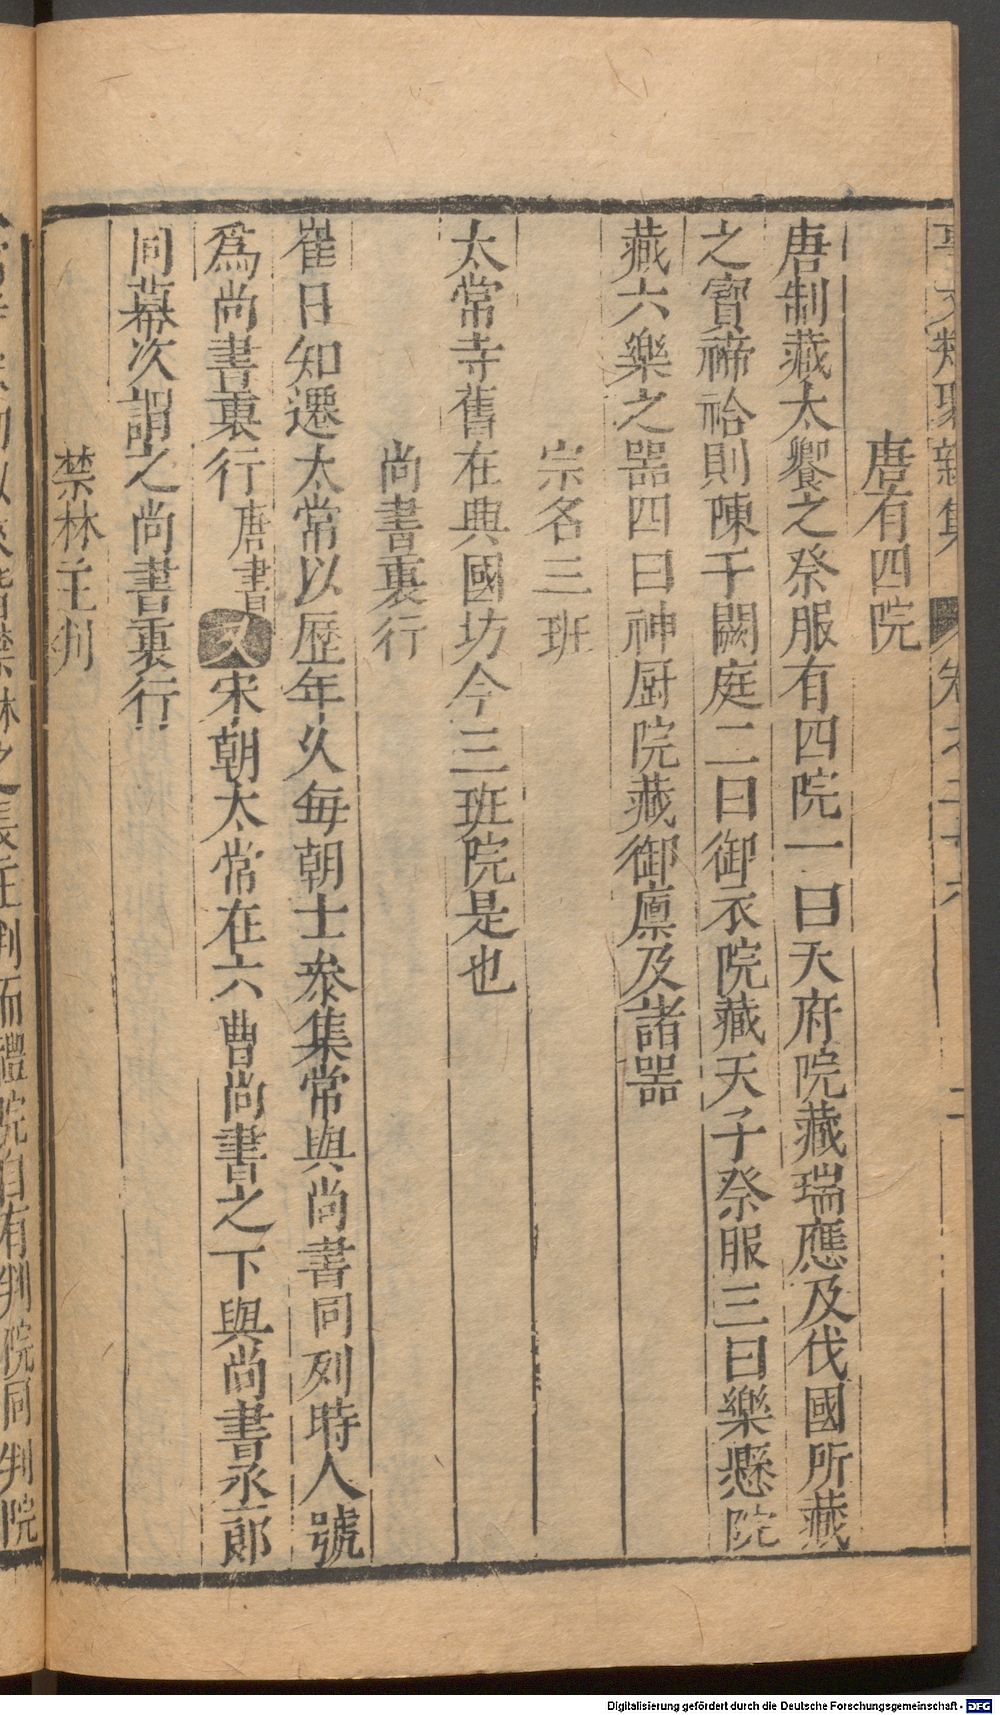 事文類聚新集 卷之二十六 二
唐有四院
唐制藏太饗之祭服有四院一曰天府院藏瑞應及伐國所藏
之寶禘祫則陳于闕庭二曰御衣院藏天子祭服三曰樂懸院
藏六樂之器四曰神厨院藏御廪及諸器
宗名三班
太常寺舊在興國坊今三班院是也
尚書裏行
崔日知遷太常以歷年久每朝士叅集常與尚書同列時人號
爲尚書裏行唐書又宋朝太常在六曹尚書之下與尚書丞郎
同幕次謂之尚書裏行
禁林主判
禁林之長主判而禮院自有判院同判院
Digitalisierung gefördert durch die Deutsche Forschungsgemeinschaft - DFG